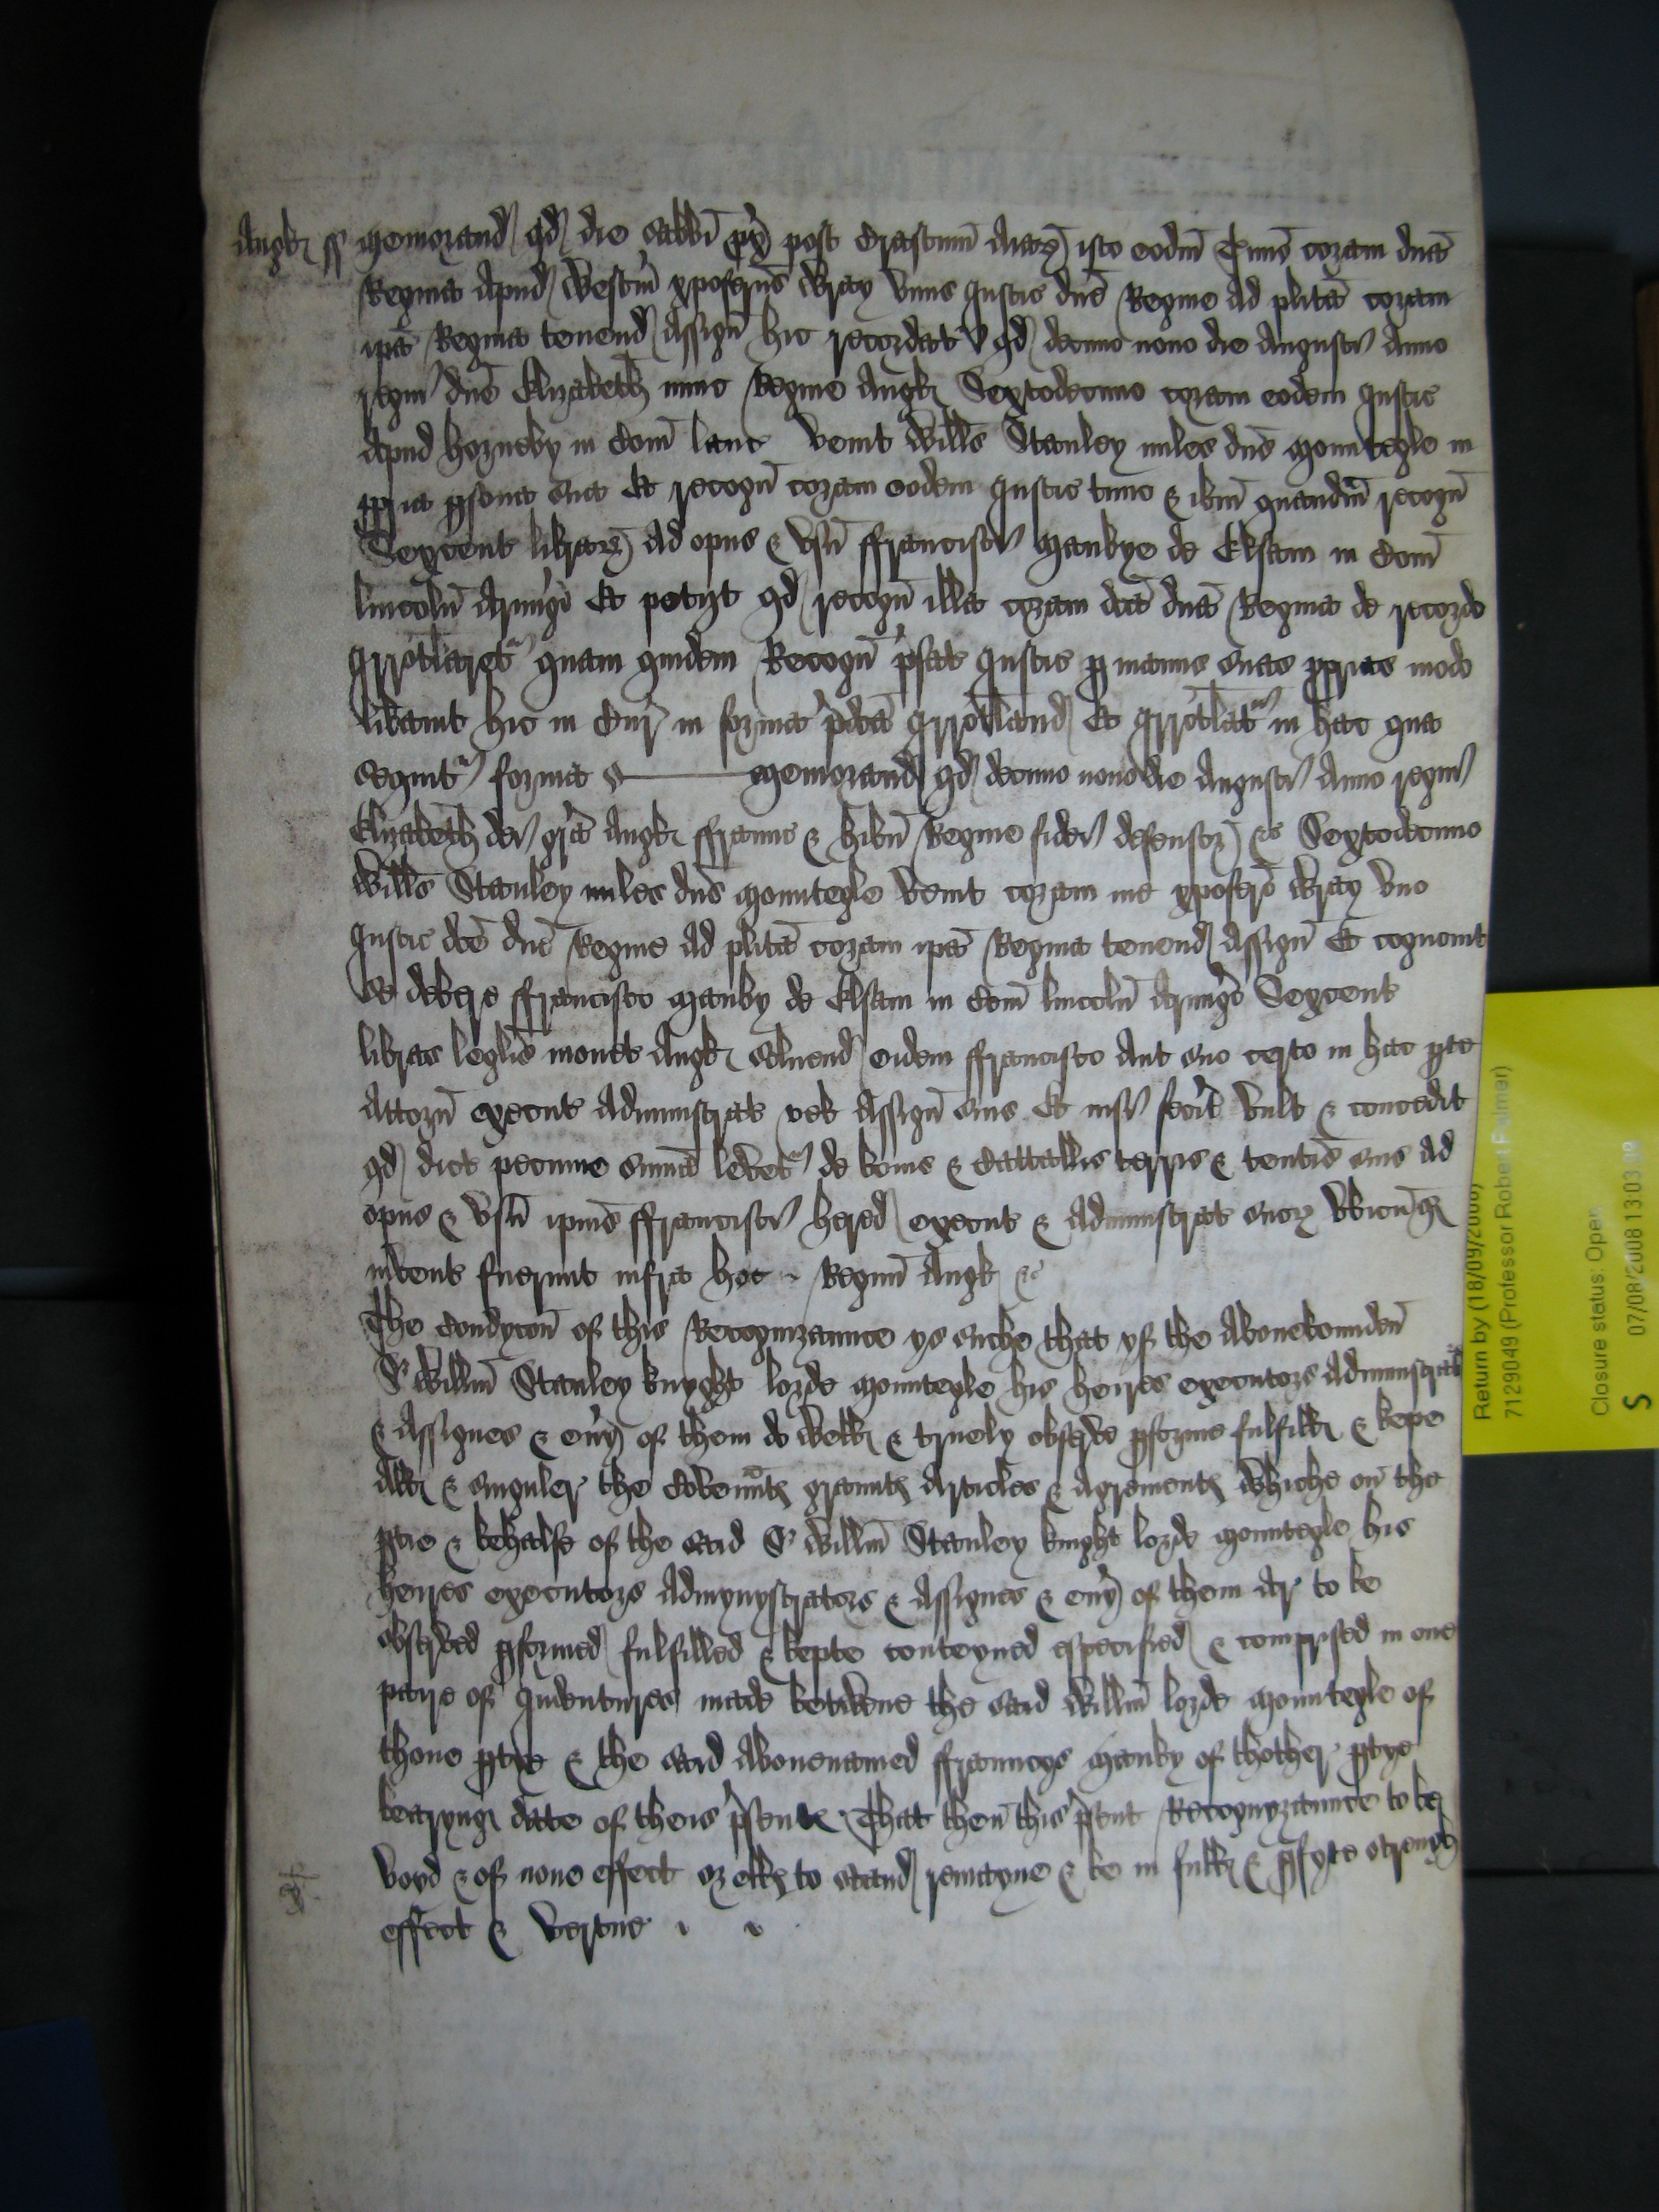 Angl ss Memorand qd die Sabbi px post Crastinu Aiar isto eodm Tmio coram dna
Regina apud Westm xpoferus Wray unus Justic dne Regine ad plita coram
ipa Regina tenend assign hic recordat qd decimo nono die Augusti Anno
regni dne Elizabeth nunc Regine Angl Sextodecimo coram eodem Justic
apud Horneby in Com Lanc venit Willus Stanley miles dns Mountegle in
ppria psona sua Et recogn coram eodem Justic tunc & ibm quandm recogn
Sexcent librar ad opus & usu ffrancisci Mankye de Elsam in Com
Lincoln Armigi Et petijt qd recogn illa coram dca dna Regina de recordo
Irrotlaret quam quidem Recogn pfat Justic p manus suas pprias modo
libavit hic in Cur in forma pdca Irrotland Et Irrotlat in hac qua
sequit forma ss Memorand qd decimo nono die Augusti Anno regni
Elizabeth dei gra Angl ffranc & hibn Regine fidei defensor &c Sextodecimo
Willus Stanley miles dns Mountegle venit coram me xpofero Wray uno
Justic dce dne Regine ad plita coram ipa Regina tenend assign Et cognovit
se debere ffrancisco Manby de Elsam in Com Lincoln Armigo Sexcent
libras leglis monet Angl solvend eidem ffrancisco aut suo certo in hac pte
Attorn execut administrat vel assign suis Et nisi fecit vult & concedit
qd dict pecunie suma levet de bonis & Catallis terris & tentis suis ad
opus & usu ipius ffrancisci hered execut & administrat suor ubicuq
invent fuerint infra hoc Regnu Angl &c
The Condycon of this Recognizaunce ys suche that yf the abovebounden
Sr Willm Stanley knyght lorde Mountegle his heires executors administrat
& assignes & evy of them do well & truely obsrve pforme fulfill & kepe
all & singuler the Covennts graunts articles & agrements whiche on the
ptie & behalfe of the said Sr Willm Stanley knight lorde Mountegle his
heires executors admynystrators & assignes & evy of them ar to be
obsrved pformed fulfilled & kepte conteyned especified & comprised in one
paire of Indentures made betwene the said Willm lorde Mountegle of
thone ptye & the said abovenamed ffrauncys Manby of thother ptye
bearyng date of theis psents That then this psent Recognyzaunce to be
voyd & of none effect or ells to stand remayne & be in full & pfyte strength
effect & vertue
Return by (18/09/2008)
7129049 (Professor Robert Palmer)
Closure status: Open
07/08/2008 13:03:
S